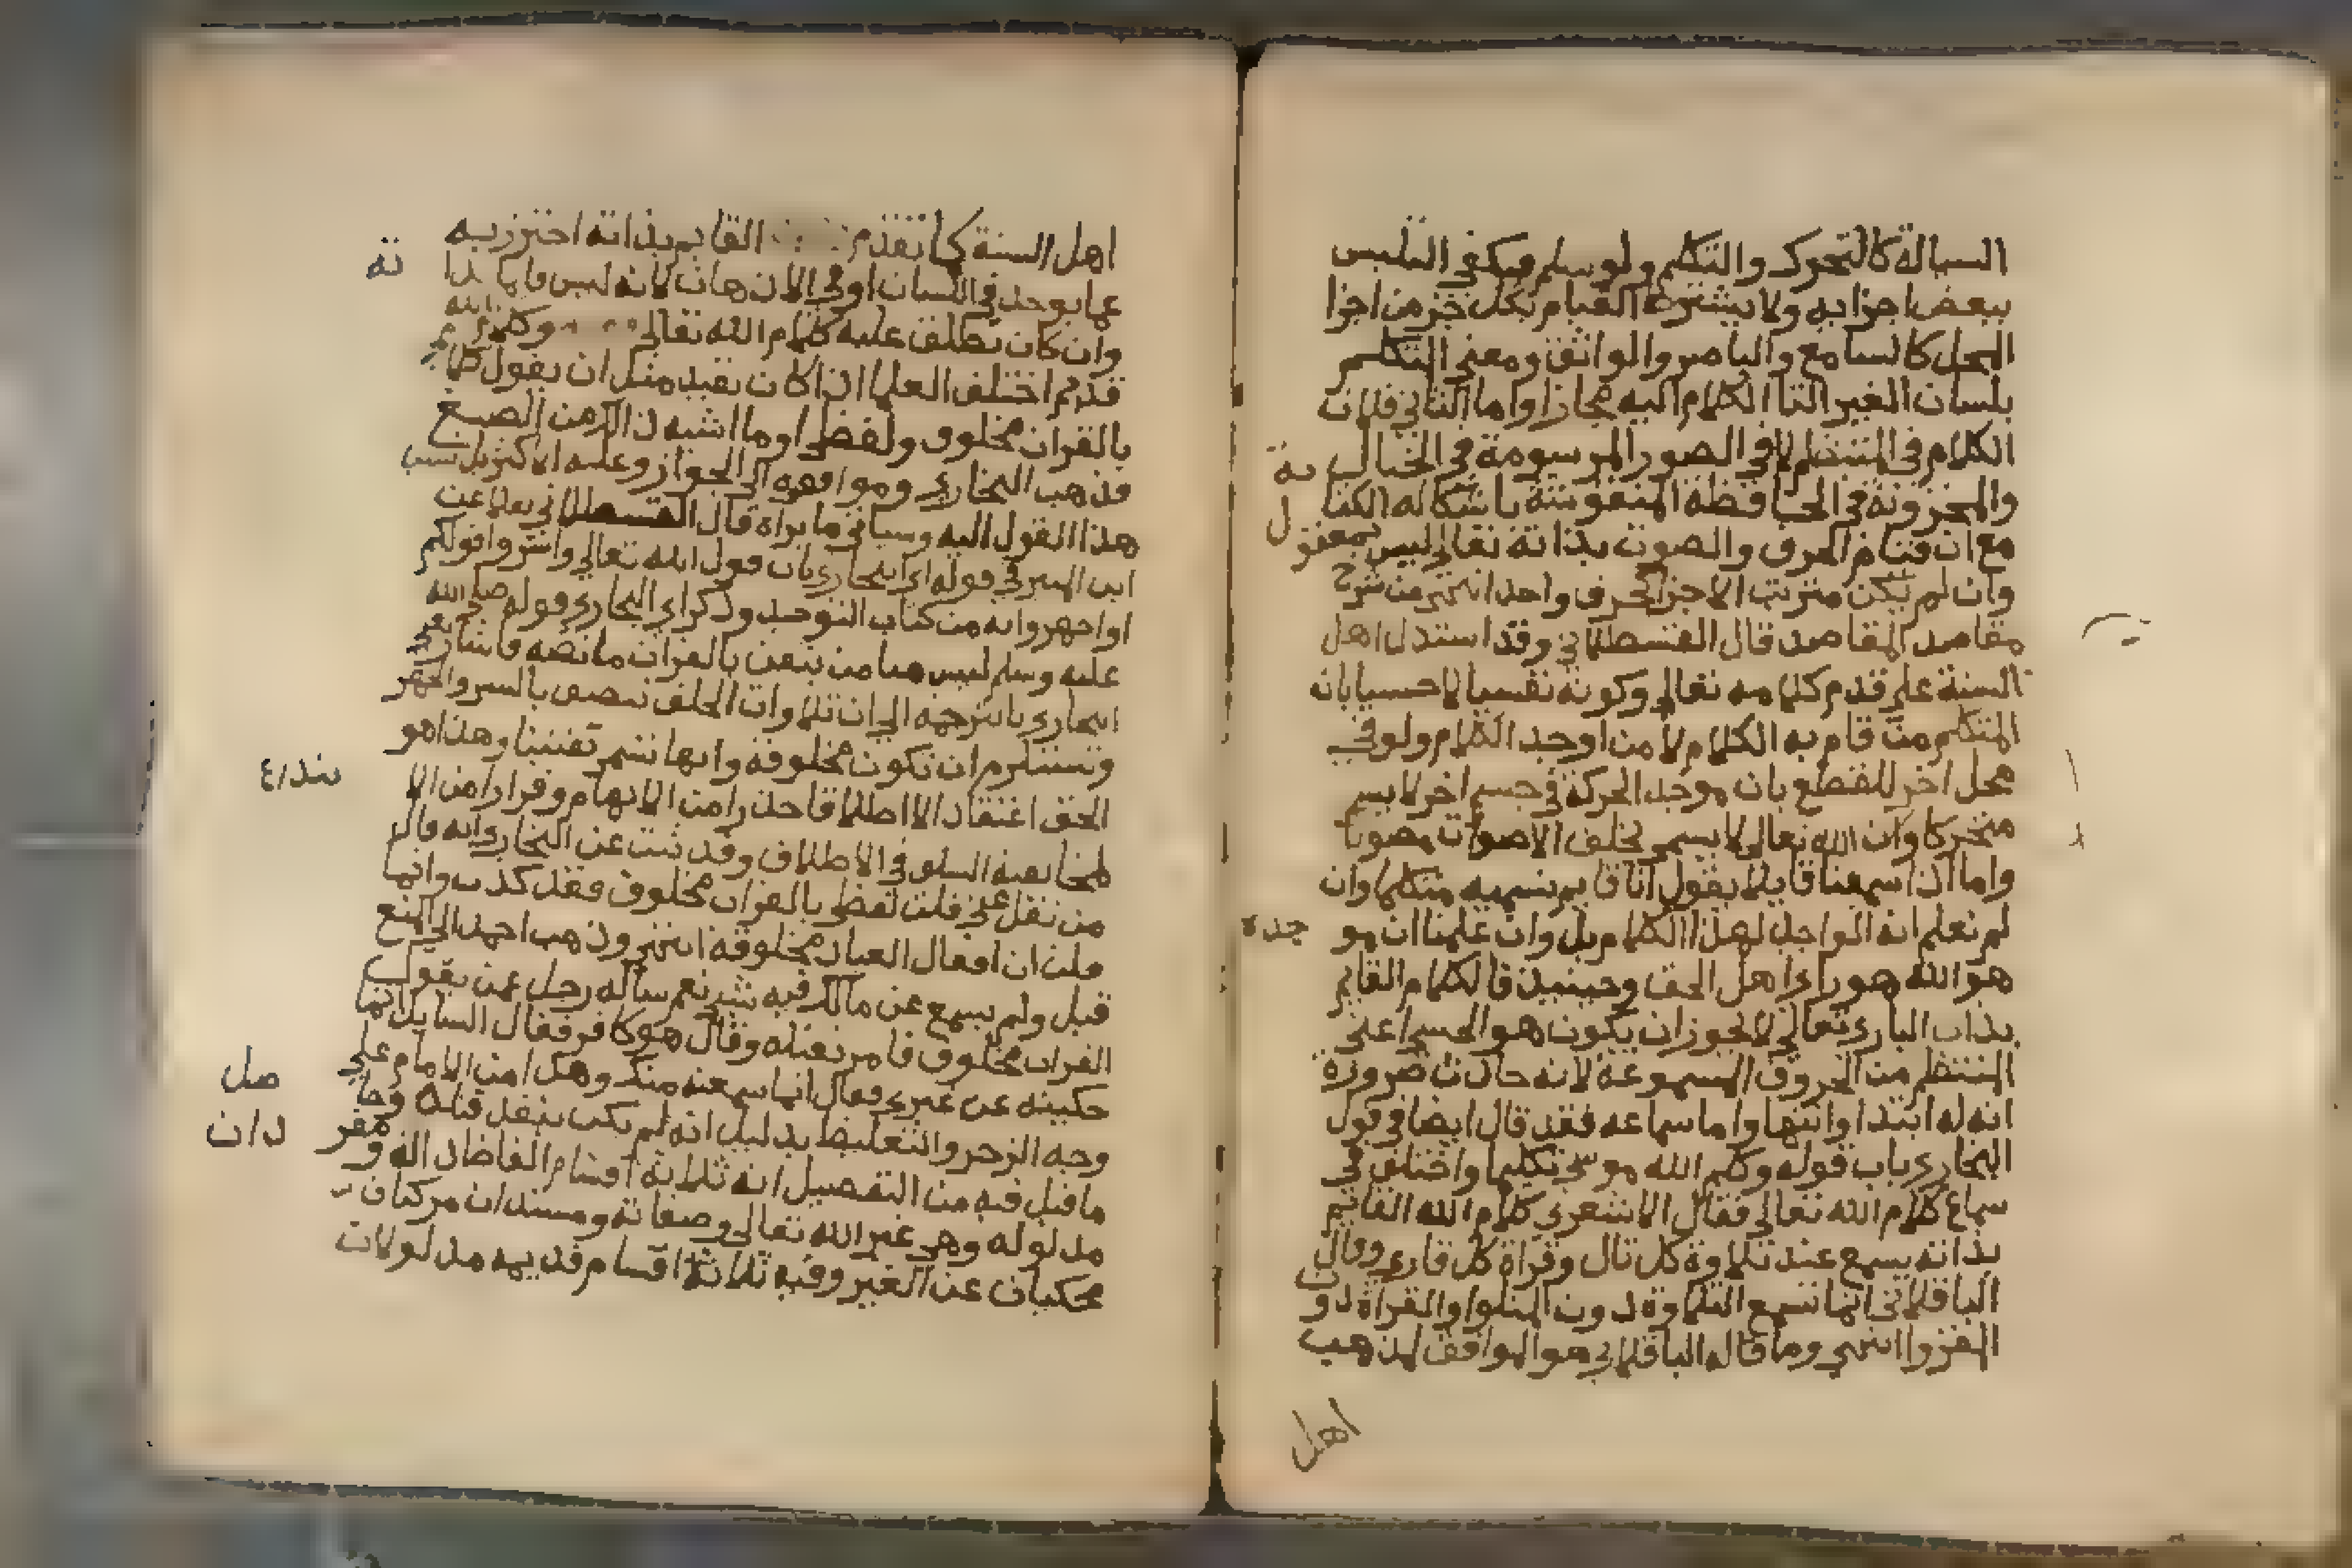 السيالة كالتحرك والتكلم ولو سلم فيكفي التلبس
ببعض اجزايه ولا يشترط القيام بكل جزء من اجزا
المحل كالسامع والباصر والواثق ومعنى التكلم
بلسان الغير القا الكلام اليه مجازا واما الثاني فلان
الكلام في المنتظم لا في الصور المرسومة في الخيال
والمخزونة في الحافظة المنقوشة باشكاله الكتا بة
مع ان قيام الحرف والصوت بذاته تعالى ليس بمعقول
وان لم يكن مترتب الاجزا كحرف واحد انتهى من شرح
مقاصد المقاصد قال القسطلاني وقد استدل اهل
السنة على قدم كلامه تعالى وكونه نفسيا لا حسيا بانه
المتكلم من قام به الكلام لا من اوجد الكلام ولو في
محل اخر للقطع بان موجد الحركة في جسم اخر لا يسمى
متحركا وان الله تعالى لا يسمى بخلق الاصوات مصوتا
واما اذا سمعنا قايلا يقول انا قايم نسميه متكلما وان
لم نعلم انه الواجد لهذا الكلام بل وان علمنا ان مو جده
هو الله هو راي اهل الحق وحينيذ فالكلام القايم
بذات الباري تعالى لا يجوز ان يكون هو الحسي اعني
المنتظم من الحروف المسموعة لانه حادث ضرورة
انه له ابتدا وانتها واما سماعه فقد قال ايضا في قول
البخاري باب قوله وكلم الله موسى تكليما واختلف في
سماع كلام الله تعالى فقال الاشعري كلام الله القايم
بذاته يسمع عند تلاوة كل تال وقراة كل قاري وقال
الباقلاني انما تسمع التلاوة دون المتلوا والقراة دون
المقروا انتهى وما قاله الباقلاني هو الموافق لمذهب
اهل
اهل السنة كما تقدم القايم بذاته احترز به
عما يوجد في اللسان او في الاذهان لانه ليس قايما بذا ته
وان كان يطلق عليه كلام الله تعالى وكلام الله
قديم اختلف العلما اذا كان تقييد منك ان يقول كلامي
بالقران مخلوق ولفظي او ما اشبه ذالك من الصيغ
فذهب البخاري وموافقوه الى الجواز وعليه الاكثر بل نسب
هذا القول اليه وسياتي ما يراه قال القسطلاني نقلا عن
ابن المنير في قوله اي البخاري باب قول الله تعالى واسروا قولكم
او اجهروا به من كتاب التوحيد وذكر اي البخاري قوله صلى الله
عليه وسلم ليس منا من يتغن بالقران ما نصه فاشار
البخاري بالترجمة الى ان تلاوات الخلق تتصف بالسر والجهر
وتستلزم ان تكون مخلوقة وانها تسمى تغنينا وهذا هو
الحق اعتقادا لا اطلاقا حذرا من الايهام وفرارا من الا بتداع
لمخالفة السلف في الاطلاق وقد ثبت عن البخاري انه قال
من نقل عني قلت لفظي بالقران مخلوق فقد كذب وانما
قلت ان افعال العباد مخلوقة انتهى وذهب احمد الى المنع
قيل ولم يسمع عن مالك فيه شي نعم ساله رجل عمن يقول
القران مخلوق فامر بقتله وقال هو كافر فقال السايل انما
حكيته عن غيري فقال انما سمعته منك وهذا من الامام على
وجه الزجر والتغليظ بدليل انه لم يكن ينفذ قتله وحا صل
ما قيل فيه من التفصيل انه ثلاثة اقسام الفاظ دالة و مفر دان
مدلوله وهي غير الله تعالى وصفاته ومسندان مركبان
محكيان عن الغير وفيه ثلاثة اقسام قديمه مدلولات